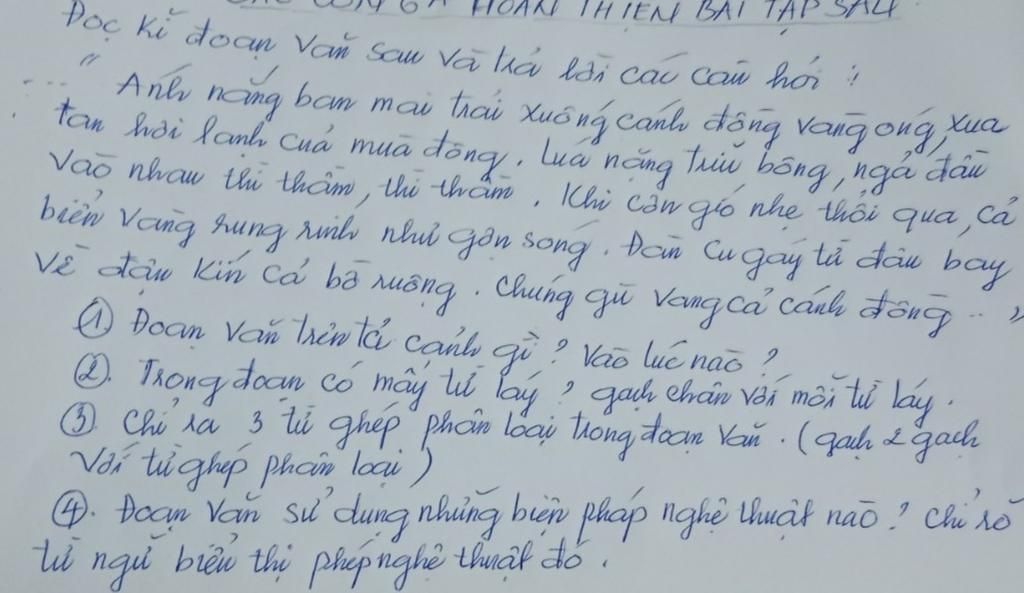 CÁC CON GV HOÀN THIỆN BÀI TẬP SAU
Đọc kĩ đoạn văn sau và trả lời các câu hỏi :
... " Ánh nắng ban mai trải xuống cánh đồng vàng óng, xua
tan hơi lạnh của mùa đông. Lúa nặng trĩu bông, ngả đầu
vào nhau thì thầm, thì thầm. Khi cơn gió nhẹ thổi qua, cả
biển vàng rung rinh như gợn sóng. Đàn cu gáy từ đâu bay
về đậu kín cả bờ ruộng. Chúng gù vang cả cánh đồng... "
① Đoạn văn trên tả cảnh gì ? Vào lúc nào ?
②. Trong đoạn có mấy từ láy ? gạch chân với mỗi từ láy.
③. Chỉ ra 3 từ ghép phân loại trong đoạn văn. (gạch 2 gạch
với từ ghép phân loại)
④. Đoạn văn sử dụng những biện pháp nghệ thuật nào ? chỉ rõ
từ ngữ biểu thị phép nghệ thuật đó.